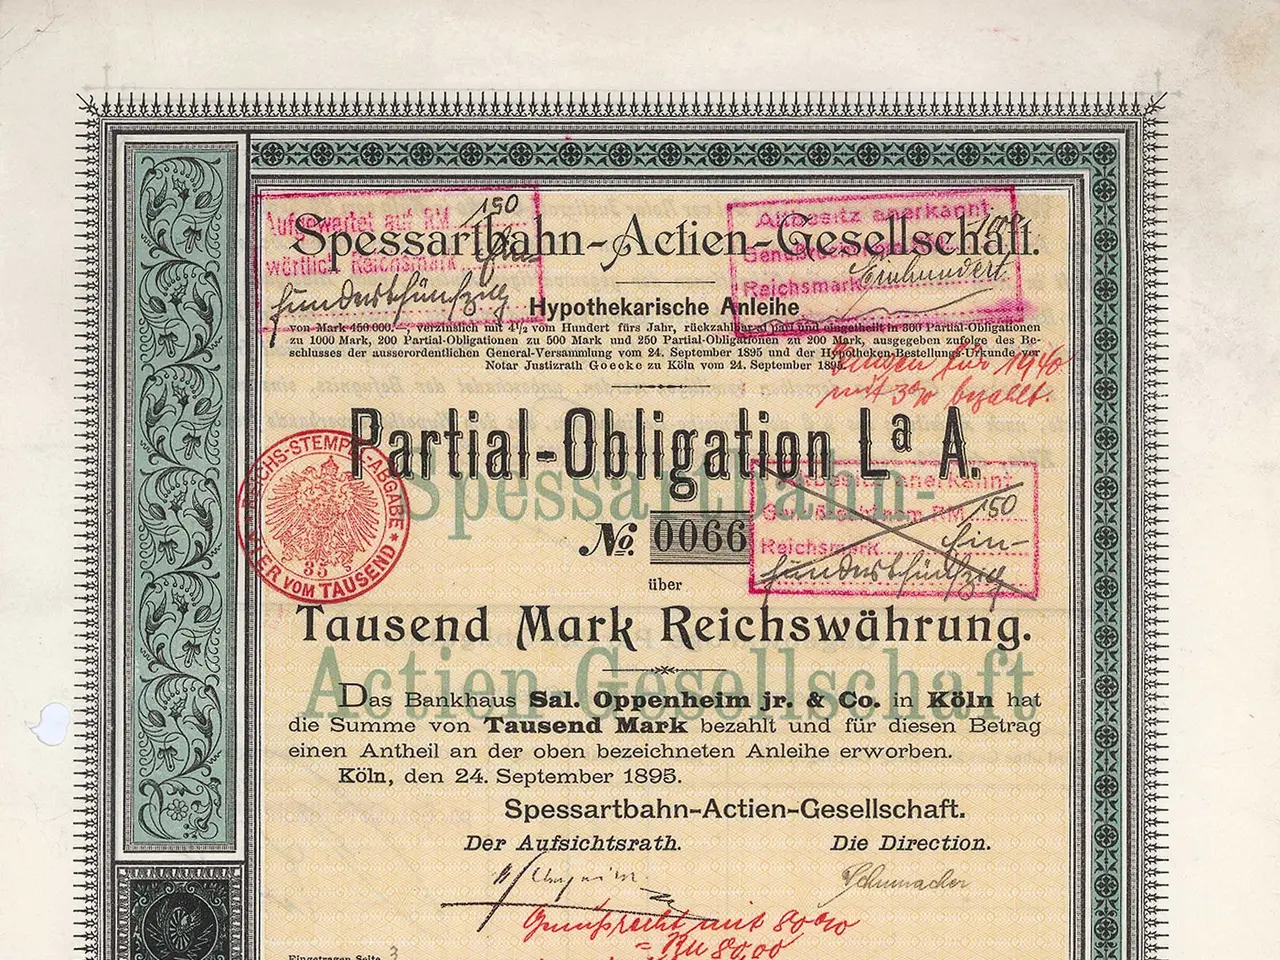 Aufgewertet auf RM 150
wörtlich Reichsmark Ein-
hundertfünfzig
Altbesitz anerkannt
Genußrecht 100
Reichsmark Einhundert
Spessartbahn-Actien-Gesellschaft.
Hypothekarische Anleihe
von Mark 450 000.—, verzinslich mit 4½ vom Hundert fürs Jahr, rückzahlbar al pari und eingetheilt in 300 Partial-Obligationen
zu 1000 Mark, 200 Partial-Obligationen zu 500 Mark und 250 Partial-Obligationen zu 200 Mark, ausgegeben zufolge des Be-
schlusses der ausserordentlichen General-Versammlung vom 24. September 1895 und der Hypotheken-Bestellungs-Urkunde vor
Notar Justizrath Goecke zu Köln vom 24. September 1895.
Zinsen für 1940
mit 3% bezahlt.
Partial-Obligation Lª A.
Spessartbahn-
REICHS-STEMPEL-ABGABE
VIER VOM TAUSEND
35
No. 0066
Altbesitz anerkannt
RM 150
Reichsmark Ein-
hundertfünfzig
über
Tausend Mark Reichswährung.
Actien-Gesellschaft
Das Bankhaus Sal. Oppenheim jr. & Co. in Köln hat
die Summe von Tausend Mark bezahlt und für diesen Betrag
einen Antheil an der oben bezeichneten Anleihe erworben.
Köln, den 24. September 1895.
Spessartbahn-Actien-Gesellschaft.
Der Aufsichtsrath. Die Direction.
Schumacher
Genußrecht mit 80%
Eingetragen Seite 3